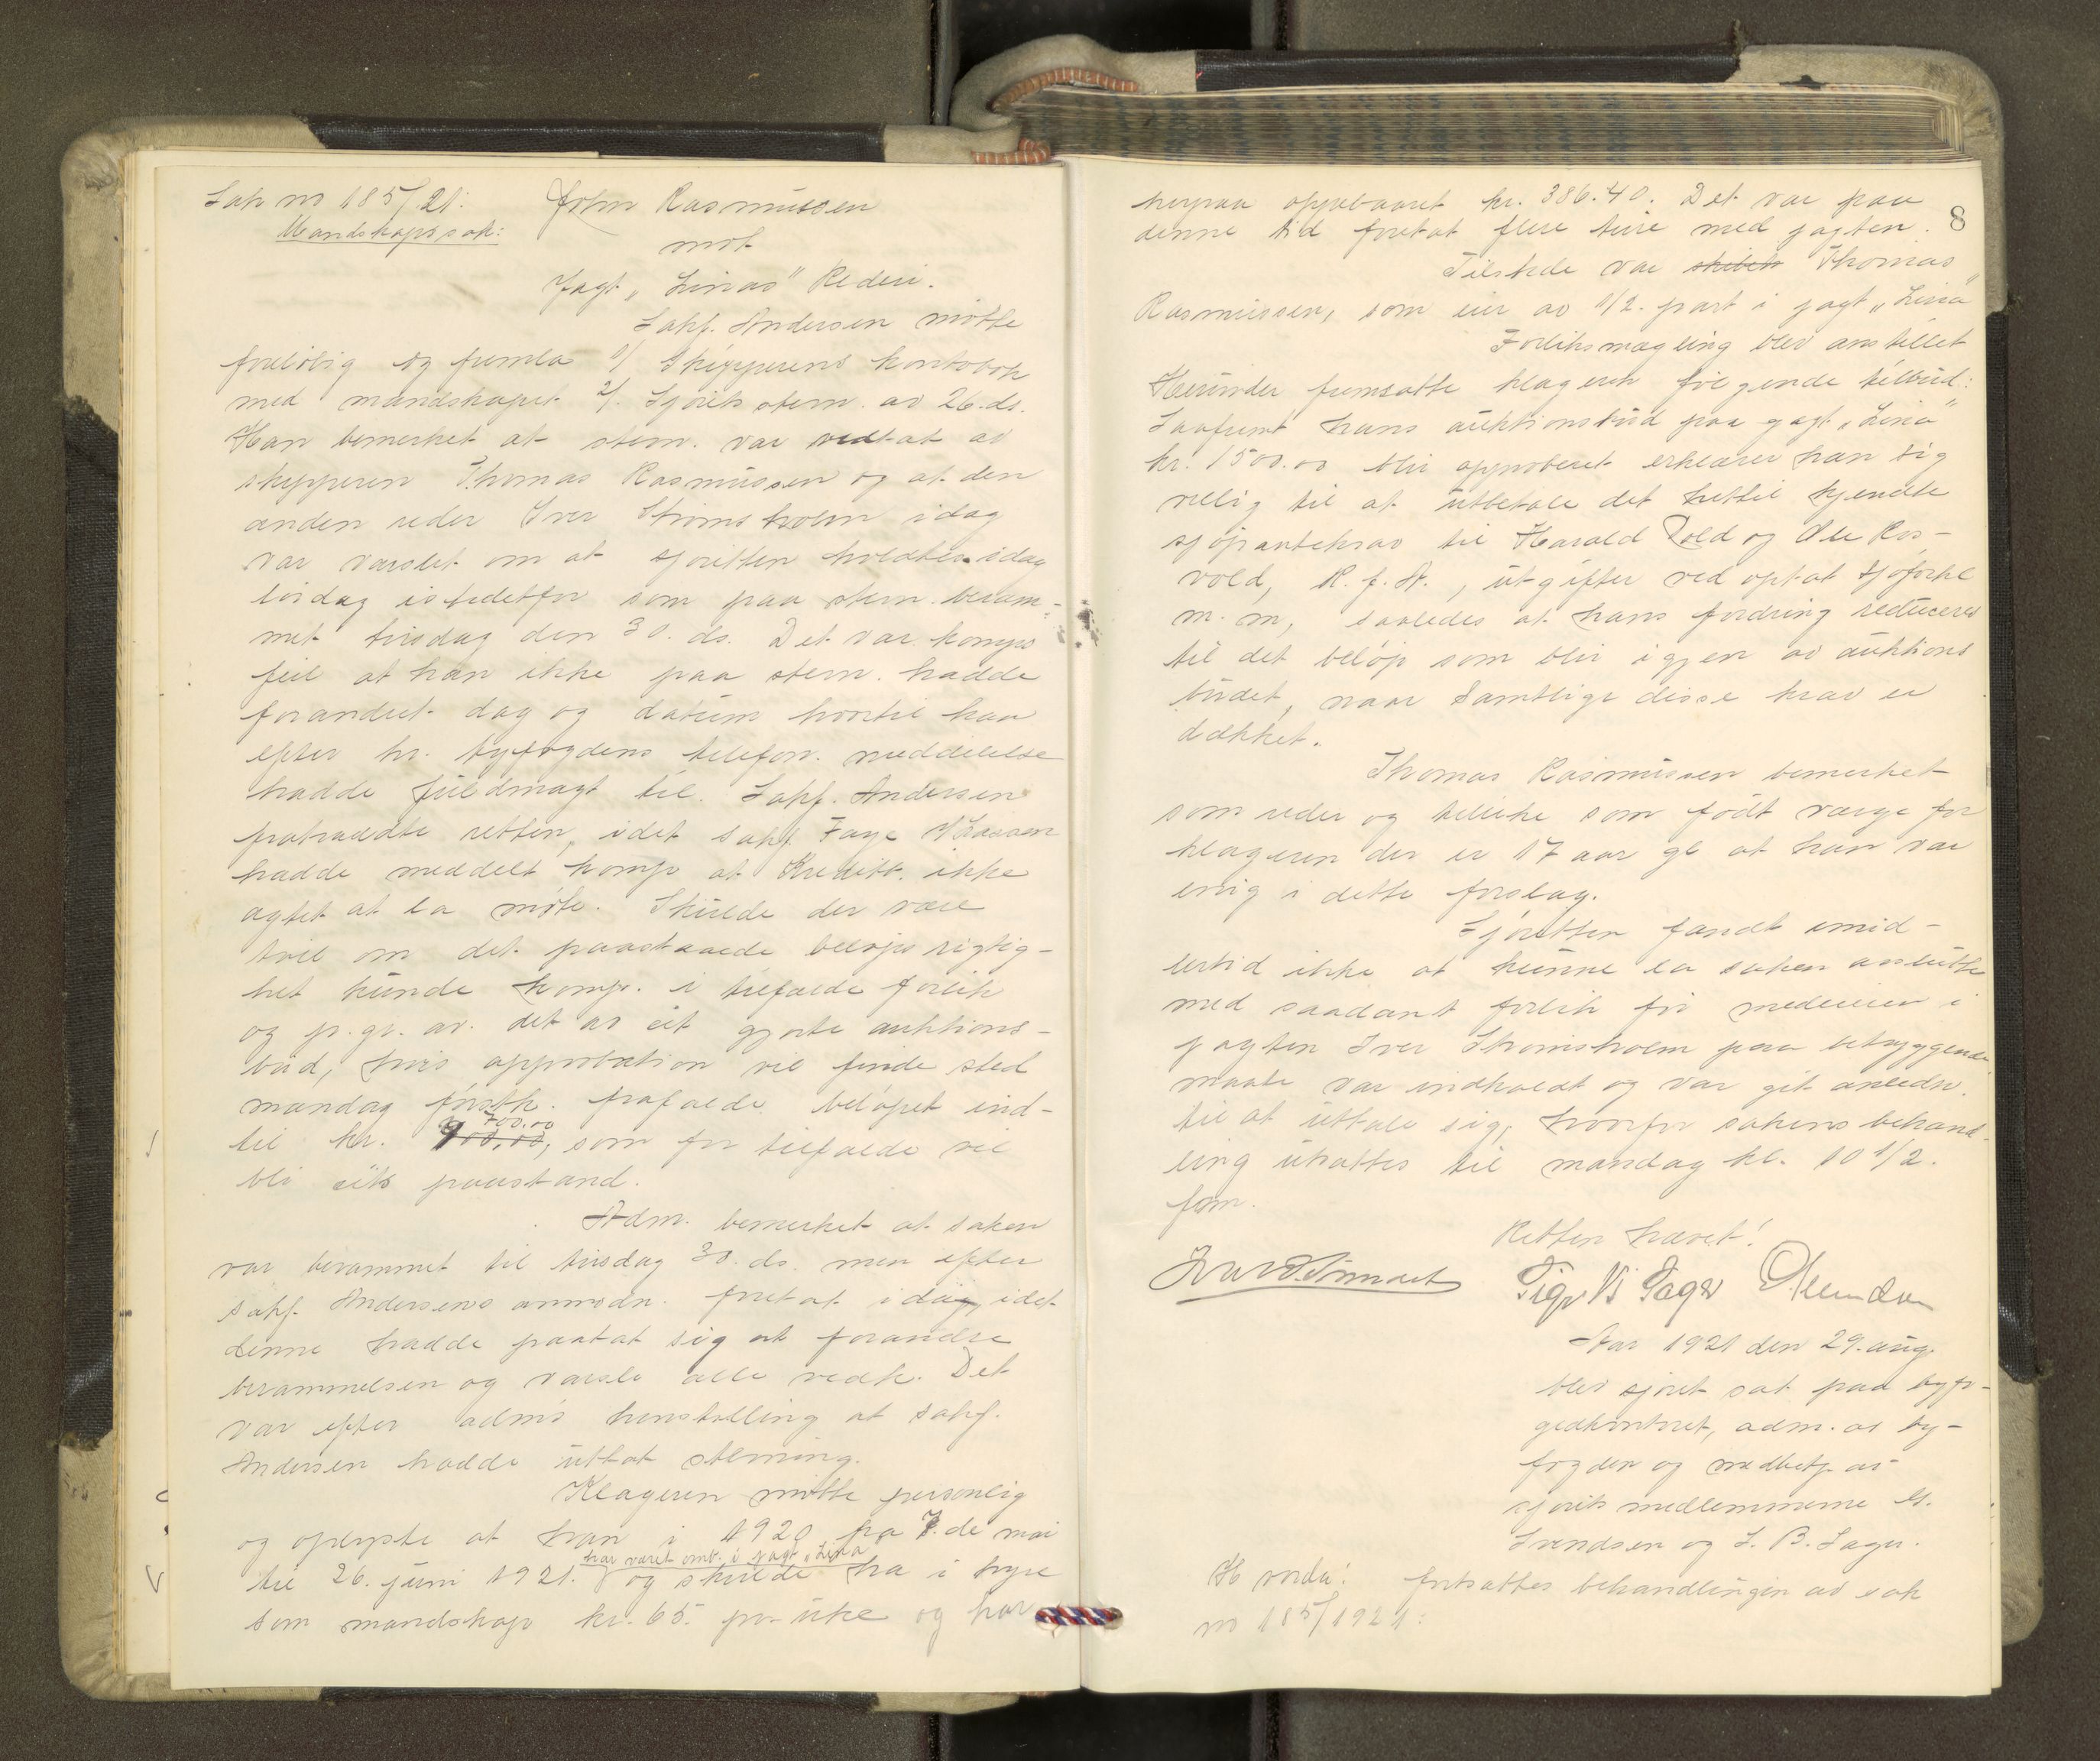 Sak no 185/21: John Rasmussen
Mandskapssak:
mot
Jagt „Linas" Rederi.
Sakf. Andersen møtte
foreløbig og fremla 1/ Skipperens kontobok
med mandskapet 2/. Sjørets stevn. av 26. ds.
Han bemerket at stevn. var vedtat av
skipperen Thomas Rasmussen og at den
anden reder Iver Strømsholm idag
var varslet om at sjøretten holdtes idag
lørdag istedetfor som paa stevn. beram-
met tirsdag den 30. ds. Det var komps
feil at han ikke paa stevn. hadde
forandret dag og datum hvortil han
efter hr. byfogdens telefon. meddelelse
hadde fuldmagt til. Sakf. Andersen
fratraadte retten, idet sakf. Faye
hadde meddelt komp at Kreditb. ikke
agtet at la møte. Skulde der være
tvil om det paastaaede beløps rigtig-
het kunde komp. i tilfælde forlik
og p. gr. av. det av cit gjorte auktions-
bud, hvis approbation vil finde sted
mandag førstk. frafalde beløpet ind-
700.00
til kr. 900.00, som for tilfælde vil
bli cits paastand.
Adm. bemerket at saken
var berammet til tirsdag 30. ds. men efter
sakf. Andersens anmodn. foretat idag, idet
denne hadde paatat sig at forandre
berammelsen og varsle alle vedk. Det
var efter adm's henstilling at sakf.
Andersen hadde uttat stevning.
Klageren møtte personlig
og oplyste at han i 1920 fra 7. de mai
har været omb. i jagt „Lina"
til 26. juni 1921. og skulde ha i hyre
som mandskap kr. 65. pr uke og har
8
herpaa oppebaaret kr. 386.40. Det var paa
denne tid foretat flere turer med jagten.
Tilstede var skibets Thomas
Rasmussen, som eier av 1/2. part i jagt „Lina"
Forliksmægling blev anstillet
Herunder fremsatte klageren følgende tilbud:
Saafremt hans auktionsbud paa jagt „Lina"
kr. 1500.00 blir approberet erklærer han sig
villig til at utbetale det hittil kjendte
sjøpantekrav til Harald Vold og Ole Ros-
vold, R. f. A., utgifter ved optat sjøforkl
m. m, saaledes at hans fordring reduceres
til det beløp som blir igjen av auktions
budet, naar samtlige disse krav er
dækket.
Thomas Rasmussen bemerket
som reder og tillike som født værge for
klageren der er 17 aar gl at han var
enig i dette forslag.
Sjøretten fandt imid-
lertid ikke at kunne la saken avslutte
med saadant forlik før medeieren i
jagten Iver Strømsholm paa betryggende
maate var indkaldt og var git anledn.
til at uttale sig, hvorfor sakens behand-
ling utsattes til mandag kl. 10 1/2.
fom.
Retten hævet!
Aar 1921 den 29. aug.
blev sjøret sat paa byfo-
gedkontoret, adm. av by-
fogden og medbetj. av
sjørets medlemmerne M.
Svendsen og S. B. Sager.
Hvorda: fortsattes behandlingen av sak
no 185/1921: